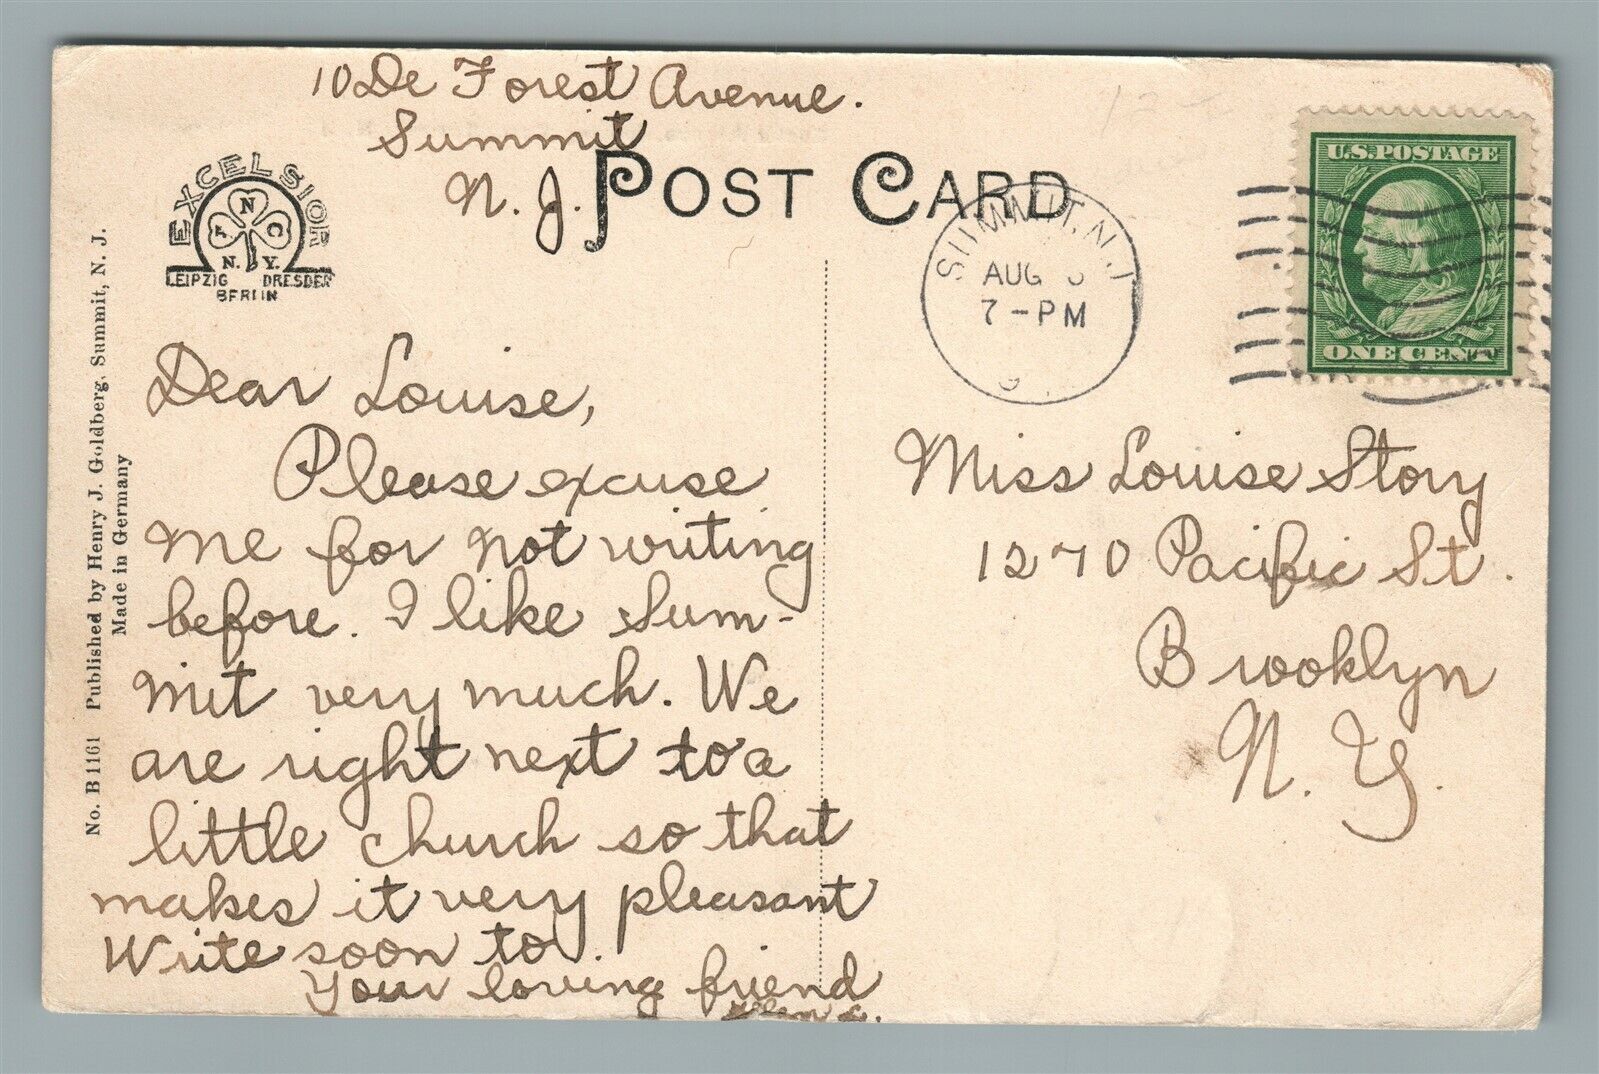 10 De Forest Avenue.
Summit
N. J.
POST CARD
EXCELSIOR
N
C
N. Y.
LEIPZIG DRESDEN
BERLIN
SUMMIT, N.J.
AUG
7-PM
U.S. POSTAGE
ONE CENT
Dear Louise,
Please excuse
me for not writing
before. I like Sum-
mit very much. We
are right next to a
little church so that
makes it very pleasant
Write soon to.
Your loving friend
Miss Louise Story
1270 Pacific St.
Brooklyn
N. Y.
No. B 1161 Published by Henry J. Goldberg, Summit, N. J.
Made in Germany